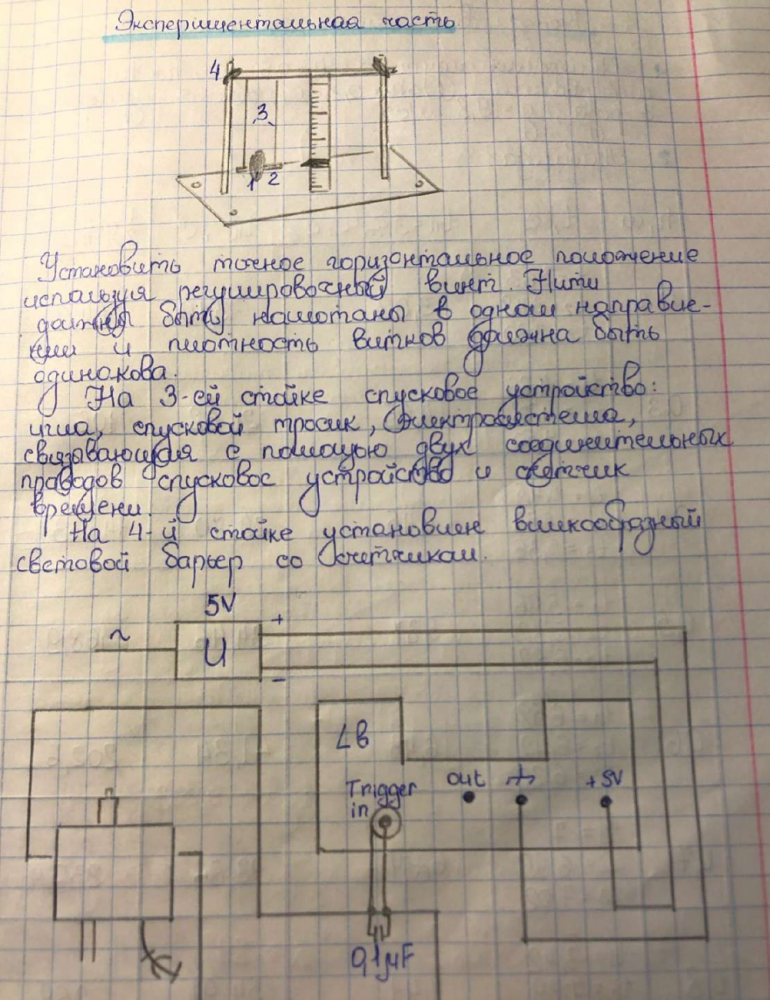 Экспериментальная часть
4
3
1 2
Установить точное горизонтальное положение
используя регулировочный винт. Нити
должны быть намотаны в одном направле-
нии и плотность витков должна быть
одинакова.
На 3-ей стойке спусковое устройство:
игла, спусковой тросик, электросистема,
связывающая с помощью двух соединительных
проводов спусковое устройство и счетчик
времени.
На 4-й стойке установлен вилкообразный
световой барьер со счетчиком.
5V
~ U + −
LB
Trigger in
out
+5V
0,1μF